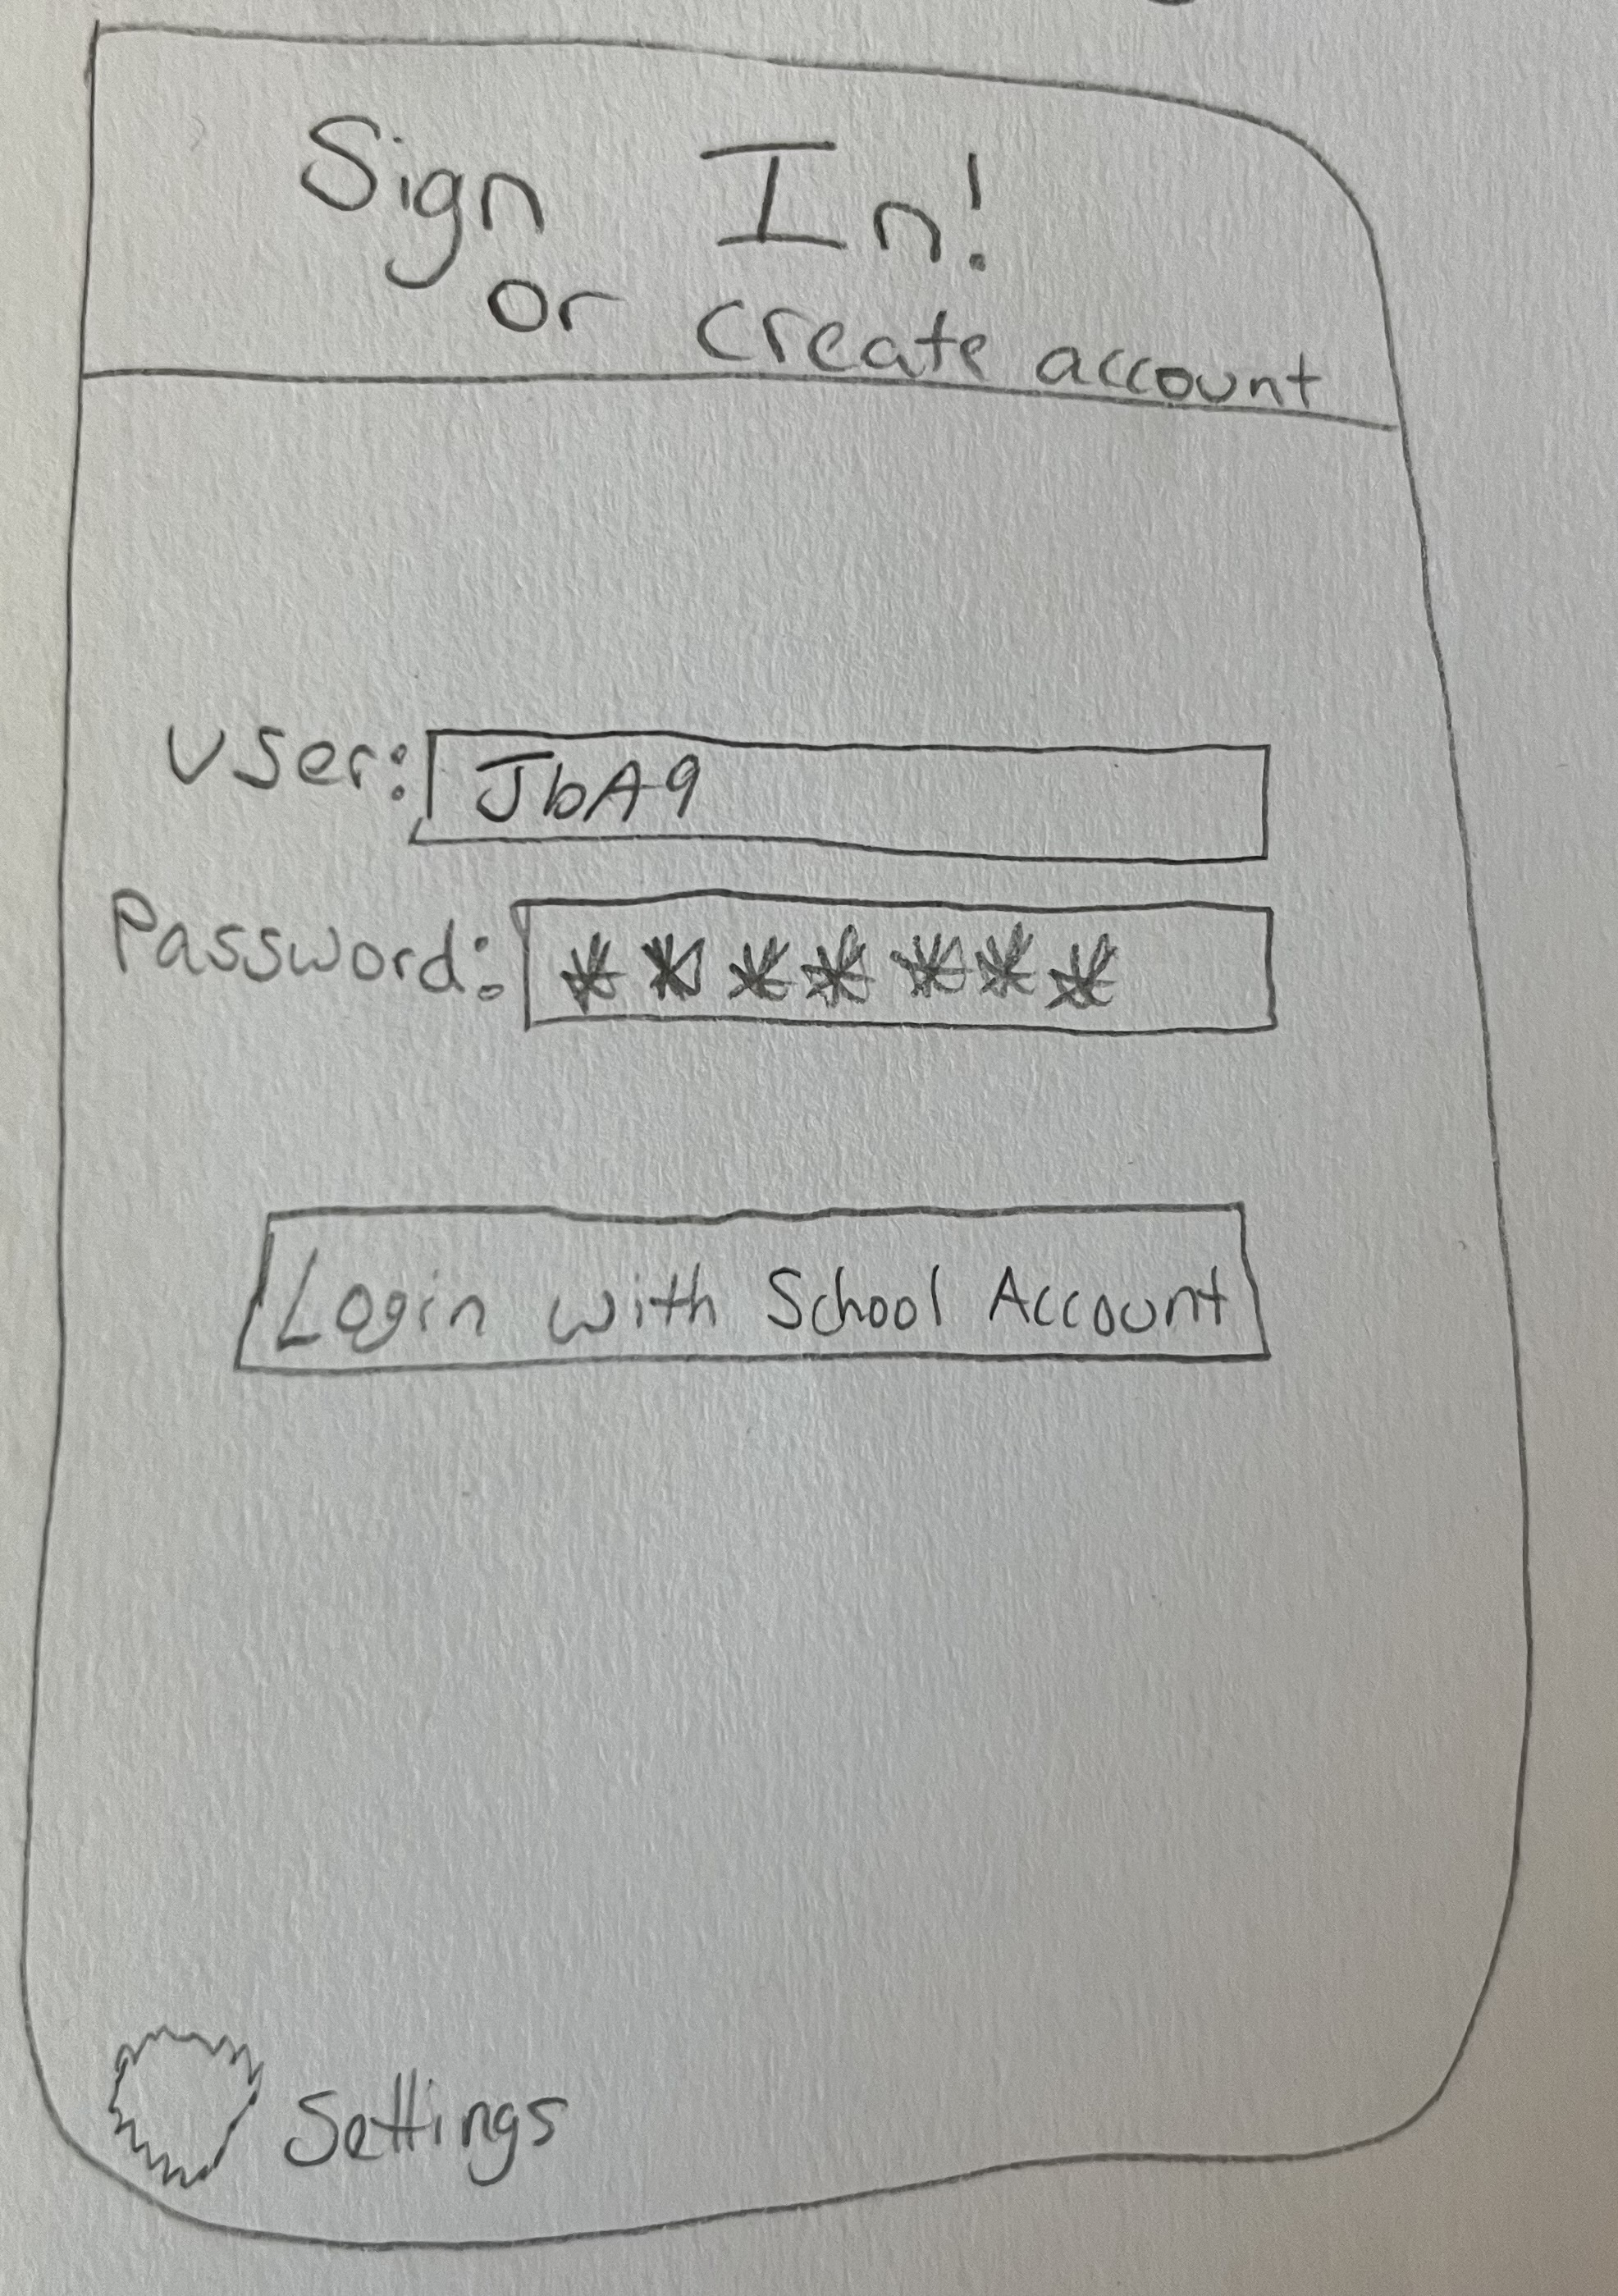 Sign In!
or create account
User: JbA9
Password: *******
Login with School Account
Settings